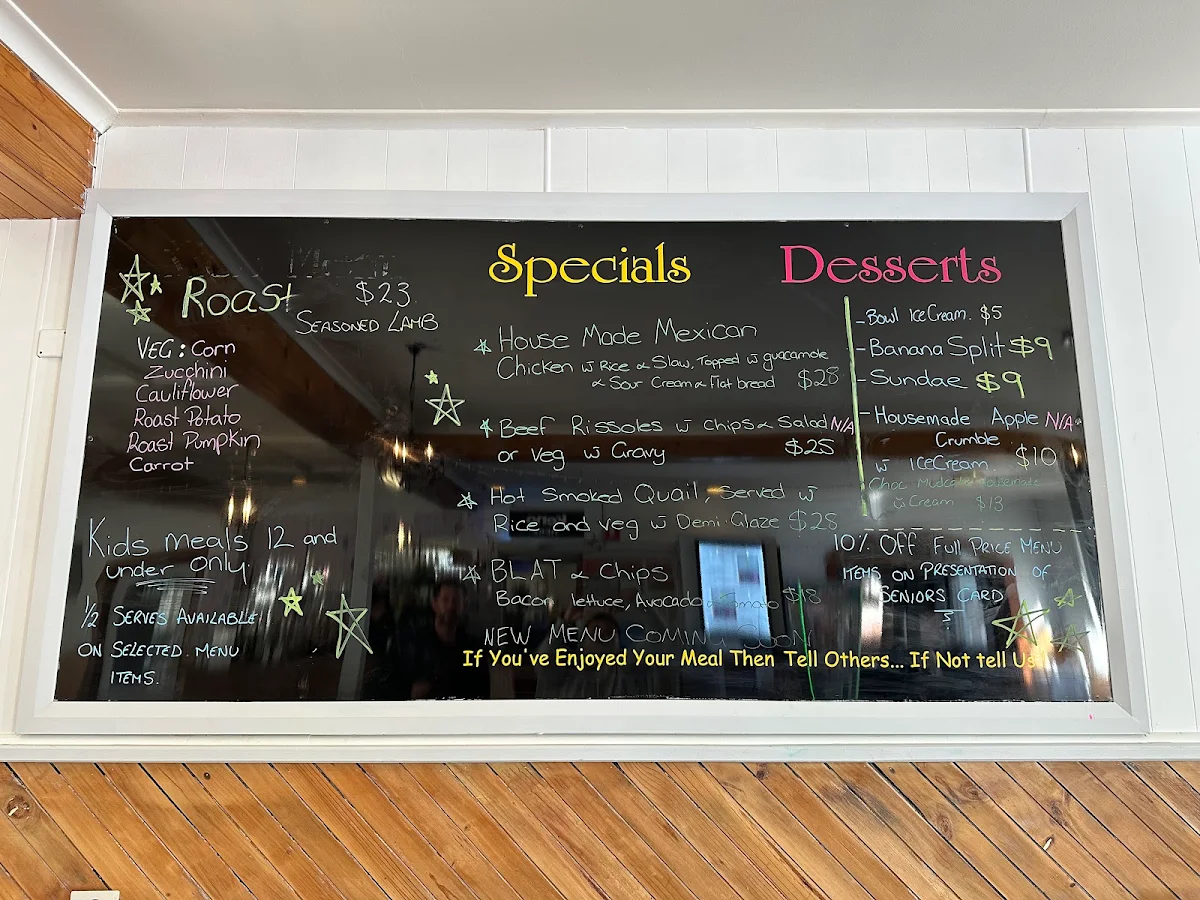 Roast $23
SEASONED LAMB
VEG: Corn
Zucchini
Cauliflower
Roast Potato
Roast Pumpkin
Carrot
Kids meals 12 and
under only.
1/2 SERVES AVAILABLE
ON SELECTED MENU
ITEMS.
Specials
House Made Mexican
Chicken w̄ Rice & Slaw, Topped w̄ guacamole
& Sour Cream & Flat bread $28
Beef Rissoles w̄ Chips & Salad N/A
or Veg w̄ Gravy $25
Hot Smoked Quail, Served w̄
Rice and Veg w̄ Demi Glaze $28
BLAT & Chips
Bacon, lettuce, Avocado & Tomato $18
NEW MENU COMING SOON
If You've Enjoyed Your Meal Then Tell Others... If Not tell Us
Desserts
- Bowl IceCream. $5
- Banana Split $9
- Sundae $9
- Housemade Apple N/A
Crumble
w̄ ICECream $10
Choc Mudcake Housemade
w̄ Cream $13
10% OFF FULL PRICE MENU
ITEMS ON PRESENTATION OF
SENIORS CARD